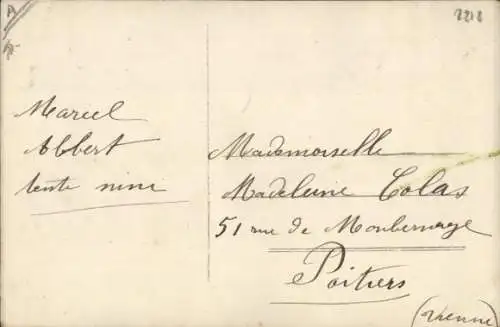 A
2218
Marcel
Abbert
tente nine
Mademoiselle
Madeleine Colas
51 rue de Montbernage
Poitiers
(Vienne)